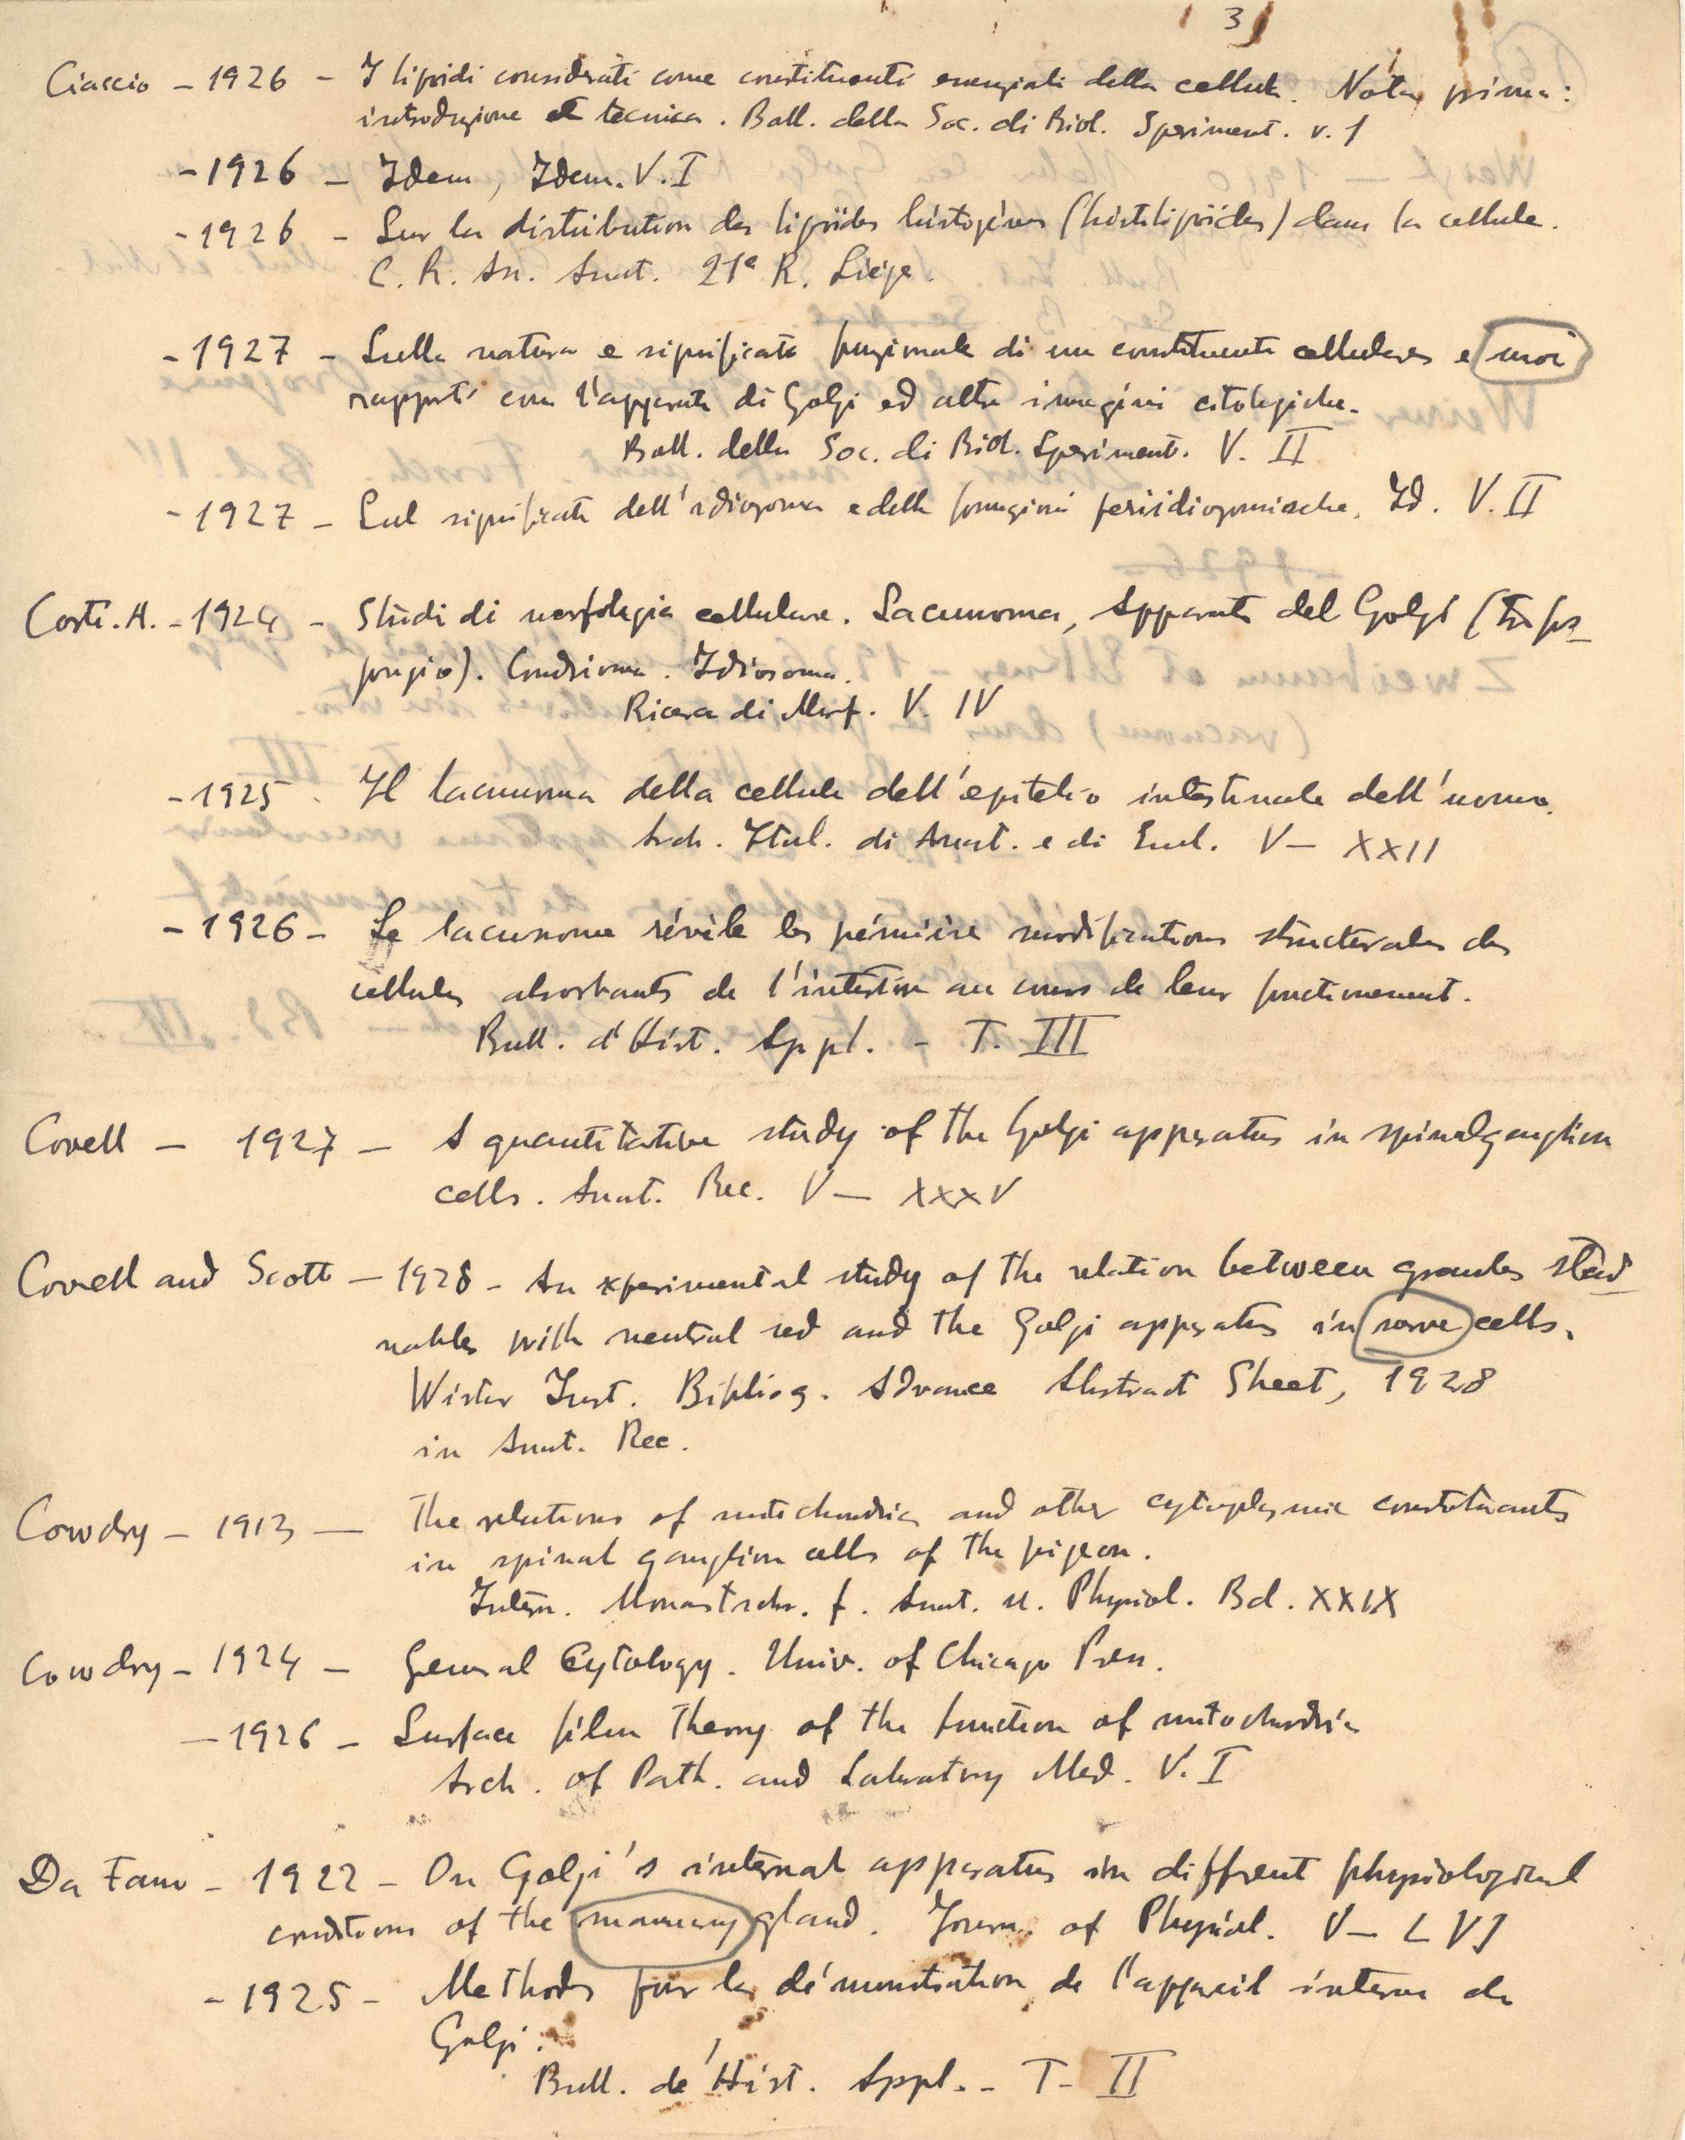 3)
Ciaccio – 1926 – I lipoidi considerati come constituenti essenziali della cellula. Nota prima:
introduzione e tecnica. Boll. della Soc. di Biol. Speriment. v. 1
– 1926 – Idem, Idem. V. I
– 1926 – Sur la distribution des lipoïdes histogènes (histolipoïdes) dans la cellule.
C. R. As. Anat. 21e R. Liège.
– 1927 – Sulla natura e significato funzionale di un constituente cellulare e suoi
rapporti con l'apparato di Golgi ed altre imagini citologiche.
Boll. della Soc. di Biol. Speriment. V. II
– 1927 – Sul significato dell'idiozoma e delle formazioni periidiozomiache. Id. V. II
Corti. A. – 1924 – Studi di morfologia cellulare. Lacunoma, Apparato del Golgi (
). Condrioma. Idiosoma.
Ricerca di Morf. V. IV
– 1925 – Il lacunoma della cellula dell'epitelio intestinale dell'uomo.
Arch. Ital. di Anat. e di Emb. V – XXII
– 1926 – Le lacunome révèle les première modifications structurales des
cellules absorbants de l'intestin au cours de leur fonctionement.
Bull. d'Hist. Appl. – T. III
Covell – 1927 – A quantitative study of the Golgi apparatus in spinal ganglion
cells. Anat. Rec. V – XXXV
Covell and Scott – 1928 – An xperimental study of the relation between granules stai
nables with neutral red and the Golgi apparatus in nerve cells.
Wistar Inst. Bibliog. Advance Abstract Sheet, 1928
in Anat. Rec.
Cowdry – 1913 – The relations of mitochondria and other cytoplasmic constituants
in spinal ganglion cells of the pigeon.
Intern. Monastschr. f. Anat. u. Physiol. Bd. XXIX
Cowdry – 1924 – General Cytology. Univ. of Chicago Press.
– 1926 – Surface film theory of the function of mitochondria
Arch. of Path. and Laboratory Med. V. I
Da Fano – 1922 – On Golgi's internal apparatus in diffrent physiological
conditions of the mammary gland. Journ. of Physiol. V – LVI
– 1925 – Methods pour la démonstration de l'appareil interne de
Golgi.
Bull. de'Hist. Appl. – T – II